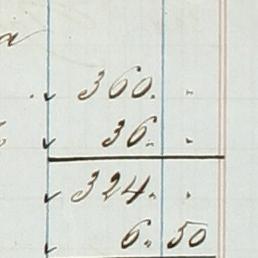 a
360. "
36. "
324. "
6. 50